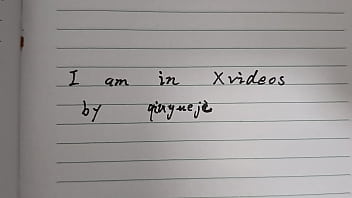 I am in Xvideos
by qingueje